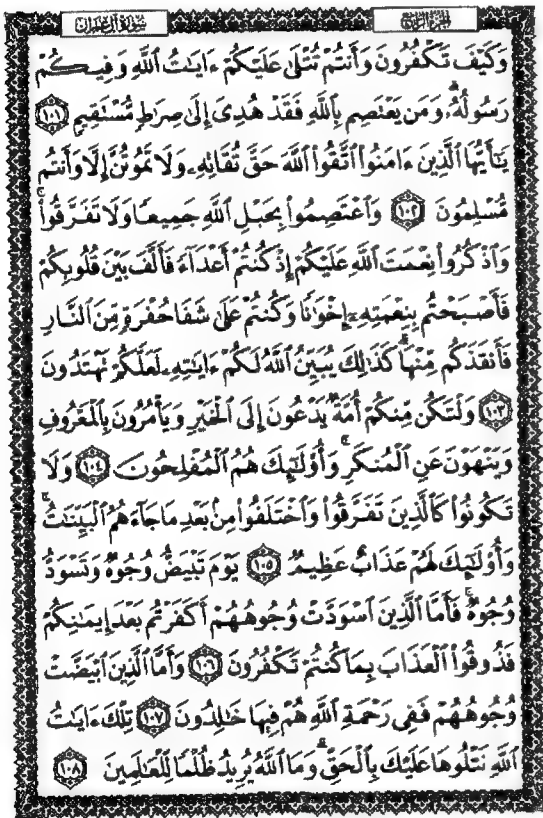 سُورَةُ آلِ عِمْرَانَ
الجُزْءُ الرَّابِعُ
وَكَيْفَ تَكْفُرُونَ وَأَنتُمْ تُتْلَىٰ عَلَيْكُمْ ءَايَٰتُ ٱللَّهِ وَفِيكُمْ
رَسُولُهُۥ ۗ وَمَن يَعْتَصِم بِٱللَّهِ فَقَدْ هُدِىَ إِلَىٰ صِرَٰطٍ مُّسْتَقِيمٍ ١٠١
يَٰٓأَيُّهَا ٱلَّذِينَ ءَامَنُوا۟ ٱتَّقُوا۟ ٱللَّهَ حَقَّ تُقَاتِهِۦ وَلَا تَمُوتُنَّ إِلَّا وَأَنتُم
مُّسْلِمُونَ ١٠٢ وَٱعْتَصِمُوا۟ بِحَبْلِ ٱللَّهِ جَمِيعًا وَلَا تَفَرَّقُوا۟ ۚ
وَٱذْكُرُوا۟ نِعْمَتَ ٱللَّهِ عَلَيْكُمْ إِذْ كُنتُمْ أَعْدَآءً فَأَلَّفَ بَيْنَ قُلُوبِكُمْ
فَأَصْبَحْتُم بِنِعْمَتِهِۦٓ إِخْوَٰنًا وَكُنتُمْ عَلَىٰ شَفَا حُفْرَةٍ مِّنَ ٱلنَّارِ
فَأَنقَذَكُم مِّنْهَا ۗ كَذَٰلِكَ يُبَيِّنُ ٱللَّهُ لَكُمْ ءَايَٰتِهِۦ لَعَلَّكُمْ تَهْتَدُونَ
١٠٣ وَلْتَكُن مِّنكُمْ أُمَّةٌ يَدْعُونَ إِلَى ٱلْخَيْرِ وَيَأْمُرُونَ بِٱلْمَعْرُوفِ
وَيَنْهَوْنَ عَنِ ٱلْمُنكَرِ ۚ وَأُو۟لَٰٓئِكَ هُمُ ٱلْمُفْلِحُونَ ١٠٤ وَلَا
تَكُونُوا۟ كَٱلَّذِينَ تَفَرَّقُوا۟ وَٱخْتَلَفُوا۟ مِنۢ بَعْدِ مَا جَآءَهُمُ ٱلْبَيِّنَٰتُ ۚ
وَأُو۟لَٰٓئِكَ لَهُمْ عَذَابٌ عَظِيمٌ ١٠٥ يَوْمَ تَبْيَضُّ وُجُوهٌ وَتَسْوَدُّ
وُجُوهٌ ۚ فَأَمَّا ٱلَّذِينَ ٱسْوَدَّتْ وُجُوهُهُمْ أَكَفَرْتُم بَعْدَ إِيمَٰنِكُمْ
فَذُوقُوا۟ ٱلْعَذَابَ بِمَا كُنتُمْ تَكْفُرُونَ ١٠٦ وَأَمَّا ٱلَّذِينَ ٱبْيَضَّتْ
وُجُوهُهُمْ فَفِى رَحْمَةِ ٱللَّهِ هُمْ فِيهَا خَٰلِدُونَ ١٠٧ تِلْكَ ءَايَٰتُ
ٱللَّهِ نَتْلُوهَا عَلَيْكَ بِٱلْحَقِّ ۗ وَمَا ٱللَّهُ يُرِيدُ ظُلْمًا لِّلْعَٰلَمِينَ ١٠٨